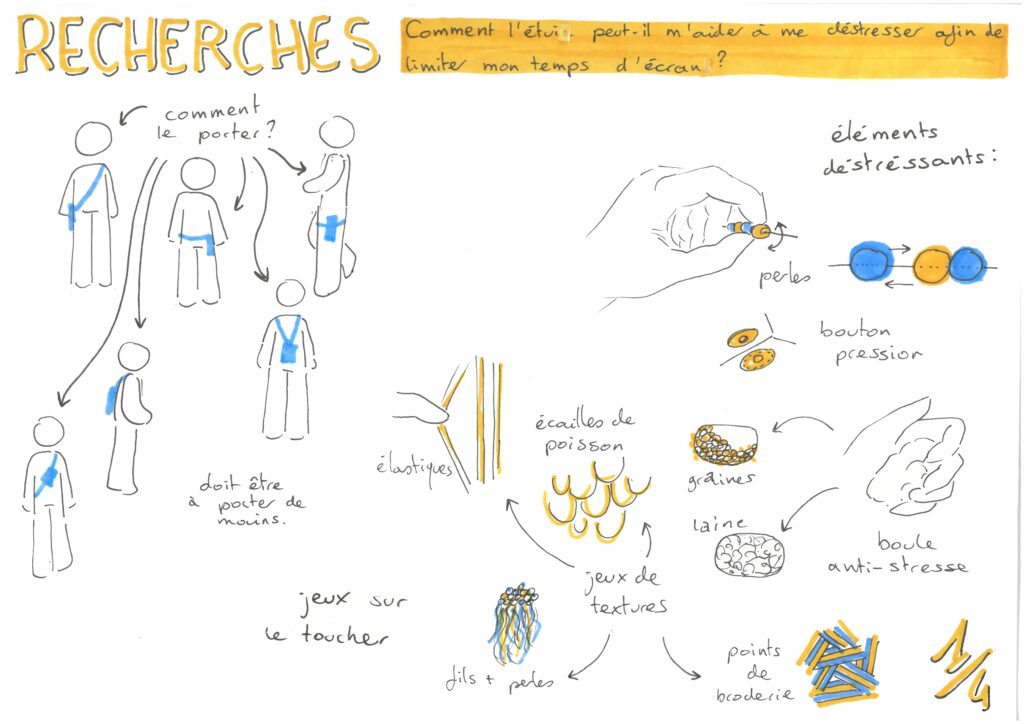 RECHERCHES
Comment l'étui, peut-il m'aider à me déstresser afin de
limiter mon temps d'écran ?
comment
le porter ?
éléments
déstréssants :
perles
bouton
pression
élastiques
écailles de
poisson
graines
laine
boule
anti-stresse
doit être
à porter de
mains.
jeux de
textures
jeux sur
le toucher
fils + perles
points
de
broderie